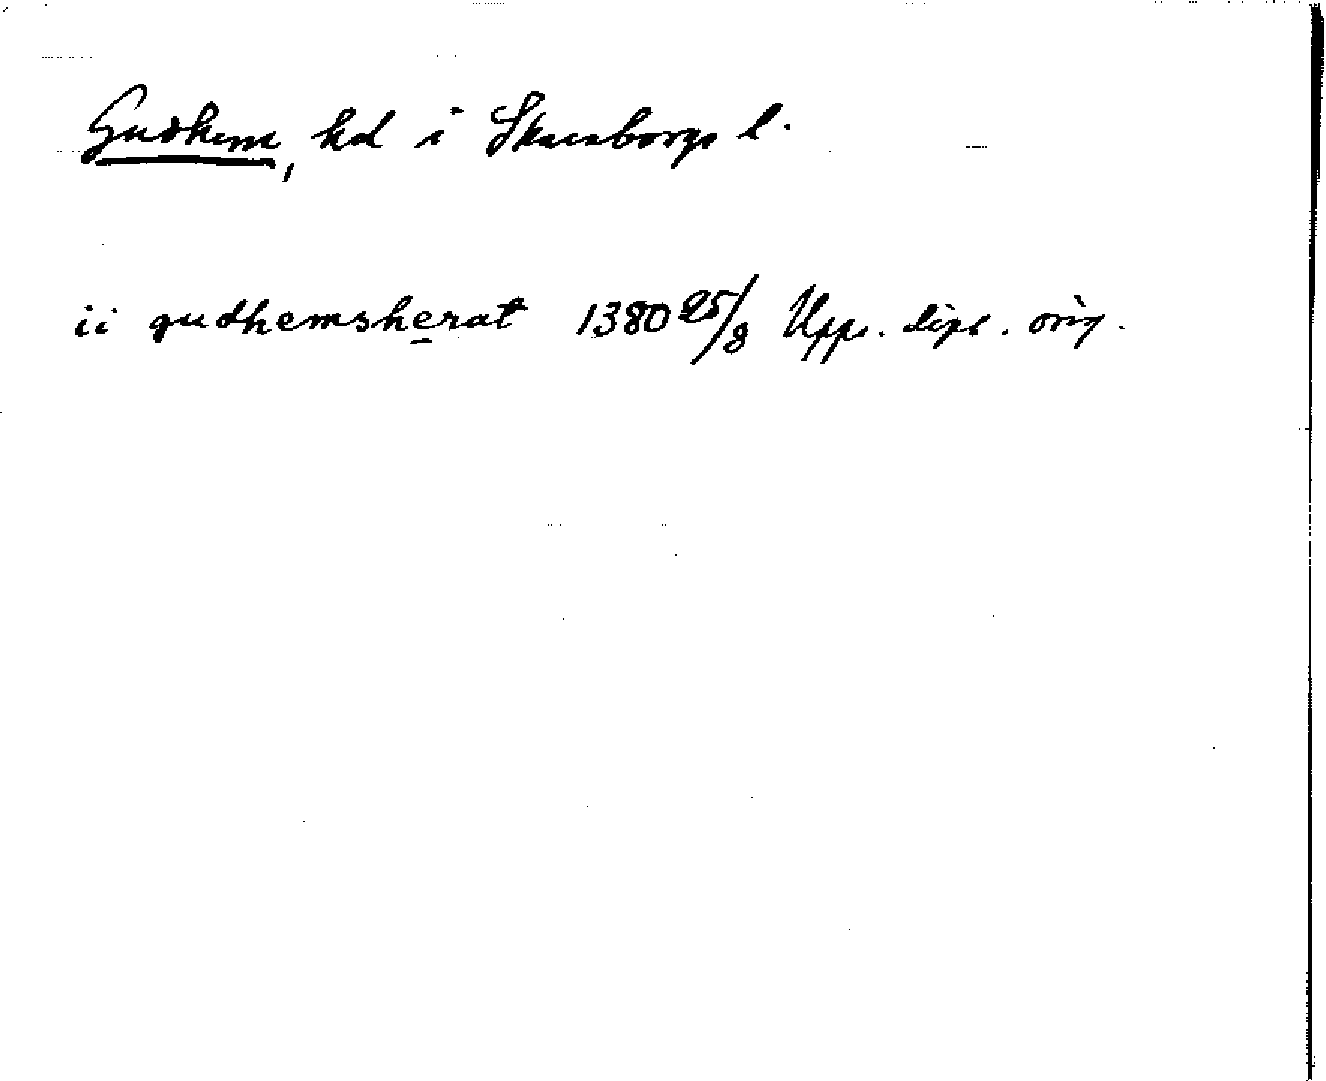 Gudhem, hd i Skaraborgs l.
ii gudhemsherat 1380 25/8 Upps. dipl. orig.